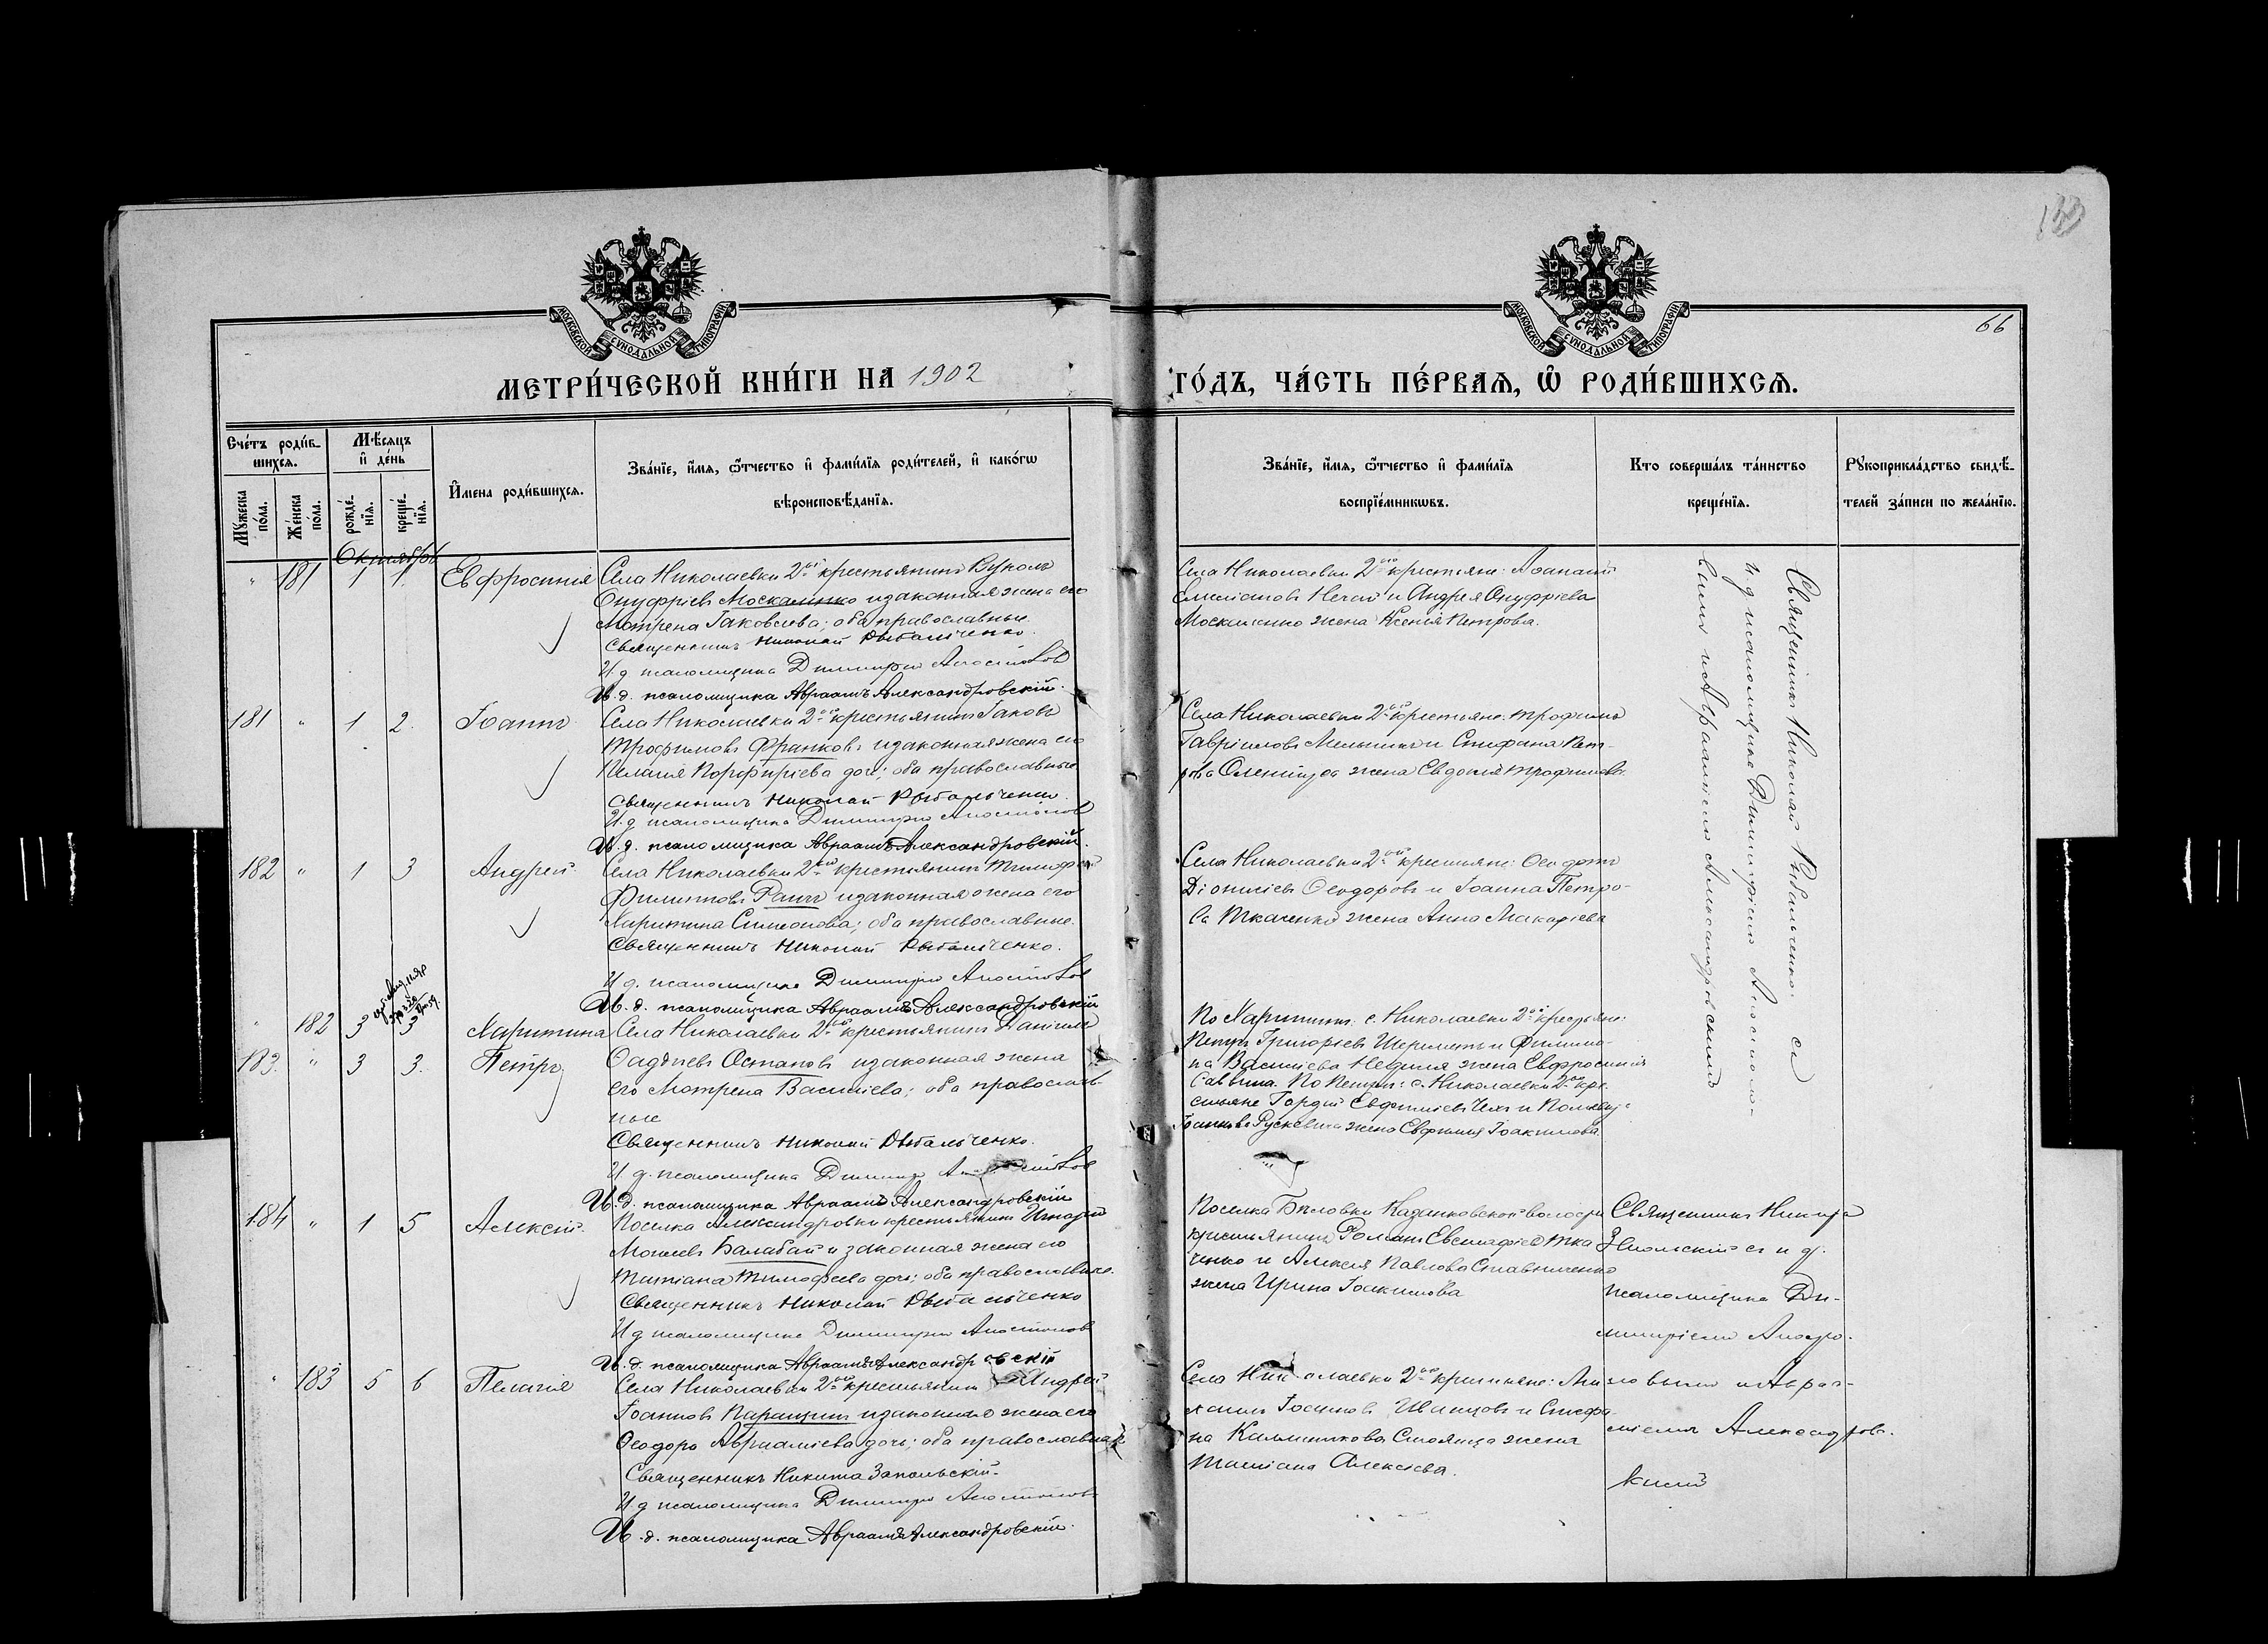 133
66
МОСКОВСКОЙ СѴНОДАЛЬНОЙ ТИПОГРАФІИ
МОСКОВСКОЙ СѴНОДАЛЬНОЙ ТИПОГРАФІИ
МЕТРИ́ЧЕСКОЙ КНИ́ГИ НА 1902
ГО́ДЪ, ЧА́СТЬ ПЕ́РВАѦ, Ѽ РОДИ́ВШИХСѦ.
Сче́тъ роди́в-
шихсѧ.
Мꙋ́жеска по́ла.
Же́нска по́ла.
Мѣ́сѧцъ
и҆ де́нь
рожде́-
нїѧ.
креще́-
нїѧ.
И҆мена роди́вшихсѧ.
Зва́нїе, и҆́мѧ, ѻ҆́тчество и҆ фами́лїѧ роди́телей, и҆ како́гѡ
вѣроисповѣ́данїѧ.
Зва́нїе, и҆́мѧ, ѻ҆́тчество и҆ фами́лїѧ
воспрїе́мникѡвъ.
Кто соверша́лъ та́инство
креще́нїѧ.
Рꙋкоприкла́дство свидѣ́-
телей за́писи по жела́нїю.
Октябрь
" 181 1 1. Евфросинія
Села Николаевки 2ой крестьянинъ Вуколъ
Онуфріевъ Москаленко и законная жена его
Мотрена Іаковлева; оба православные
Священникъ Николай Рыбальченко.
И д псаломщика Димитрій Апостолов
И. д. псаломщика Авраамъ Александровскій.
Села Николаевки 2ой крестьяне: Аѳанасій
Емеліановъ Нечай и Андрея Онуфріева
Москаленко жена Ксенія Петрова.
Священникъ Николай Рыбальченко съ
и. д. псаломщика Димитріемъ Апостоло-
вымъ и Авраамомъ Александровскимъ
181 " 1 2. Іоаннъ
Села Николаевки 2ой крестьянинъ Іаковъ
Трофимовъ Франковъ и законная жена его
Пелагія Порфиріева дочь; оба православные
Священникъ Николай Рыбальченко.
И. д псаломщика Димитрій Апостолов
И. д. псаломщика Авраамъ Александровскій.
Села Николаевки 2ой крестьяне: Трофимъ
Гавріиловъ Мельникъ и Стефана Пет-
рова жена Евдокія Трофимова.
182 " 1 3 Андрей.
Села Николаевки 2ой крестьянинъ Тимофей
Филипповъ и законная жена его
Харитина Симеонова; оба православные.
Священникъ Николай Рыбальченко.
И д. псаломщика Димитрій Апостолов
И. д. псаломщика Авраамъ Александровскій
Села Николаевки 2ой крестьяне: Ѳеодотъ
Діонисіевъ Ѳеодоровъ и Іоанна Петро-
ва Ткаченко жена Анна Макаріева
" 182 3 3 Харитина
183. " 3 3. Петръ
Села Николаевки 2ой крестьянинъ Даніилъ
Ѳаддѣевъ Остаповъ и законная жена
его Мотрена Василіева; оба православ-
ные
Священникъ Николай Рыбальченко.
И д. псаломщика Димитрій
И. д. псаломщика Авраамъ Александровскій
По Харитинѣ: с. Николаевки 2ой крестьяне:
Петръ Григорьевъ Шереметъ и Филипп-
па Василіева жена Евфросинія
Саввина. По Петрѣ: с. Николаевки 2ой кре-
стьяне Гордій Евфиміевъ и
Іоаннова жена Евфимія Іоакимова.
184 " 1 5 Алексій.
Поселка Александровки крестьянинъ Игнатій
Балабай и законная жена его
Татіана Тимофеева дочь; оба православные.
Священникъ Николай Рыбальченко
И д псаломщика Димитрій Апостолов
И. д. псаломщика Авраамъ Александровскій
Поселка Бѣловки Казанковской волости
крестьянинъ Романъ Евстафіев Тка-
ченко и Алексія Павлова Ставниченко
жена Ирина Іоакимова
Священникъ Никита
Запольскій съ и д.
псаломщика Ди-
митріемъ Апосто-
ловымъ и Авраа-
міемъ Александров-
скимъ
" 183 5 6 Пелагія
Села Николаевки 2ой крестьянинъ Андрей
Іоанновъ Паращинъ и законная жена его
Ѳеодора Авраміева дочь; оба православные
Священникъ Никита Запольскій.
И. д псаломщика Димитрій Апостолов
И. д. псаломщика Авраамъ Александровскій.
Села Николаевки 2ой крестьяне: Ми-
хаилъ Іоанновъ Швецовъ и Стефа-
на Калиникова Стоянца жена
Татіана Алексіева.